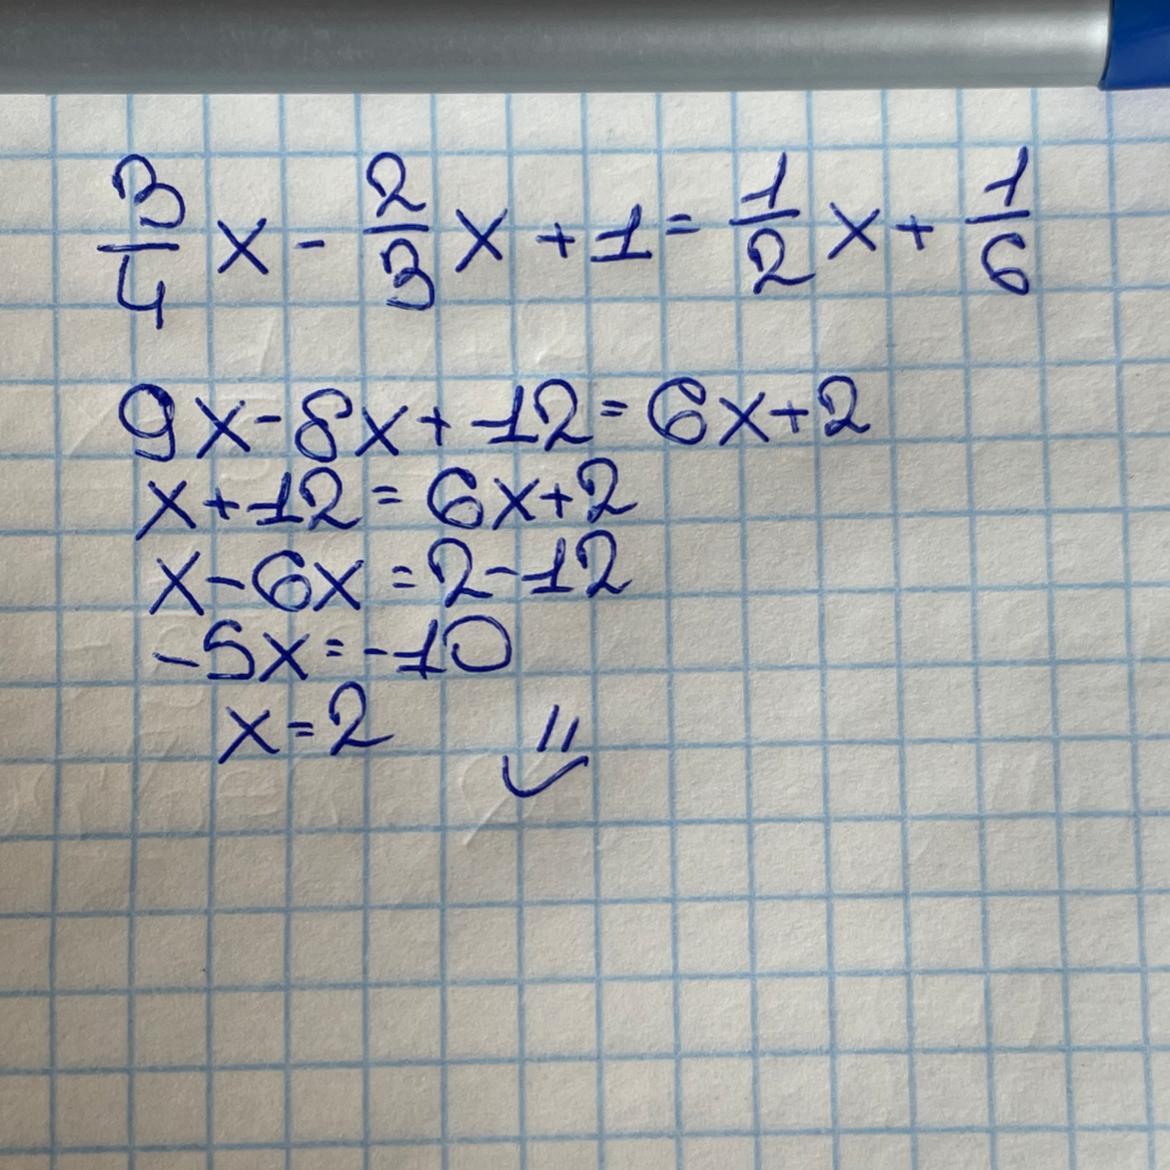 3/4 x - 2/3 x + 1 = 1/2 x + 1/6
9x - 8x + 12 = 6x + 2
x + 12 = 6x + 2
x - 6x = 2 - 12
-5x = -10
x = 2